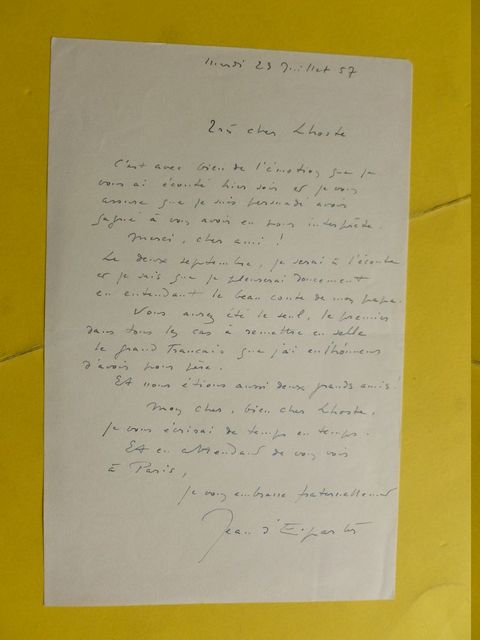 Mardi 23 Juillet 57
Très cher Lhoste
C'est avec bien de l'émotion que je
vous ai écouté hier soir et je vous
assure que je suis persuadé avoir
gagné à vous avoir eu pour interprète.
Merci, cher ami !
Le deux septembre, je serai à l'écoute
et je sais que je pleurerai doucement
en entendant le beau conte de mon papa.
Vous aurez été le seul, le premier
dans tous les cas à remettre en selle
le grand Français que j'ai eu l'honneur
d'avoir pour père.
Et nous étions aussi deux grands amis !
Mon cher, bien cher Lhoste,
je vous écrirai de temps en temps.
Et en attendant de vous voir
à Paris,
je vous embrasse fraternellement
Jean d'Esparbès